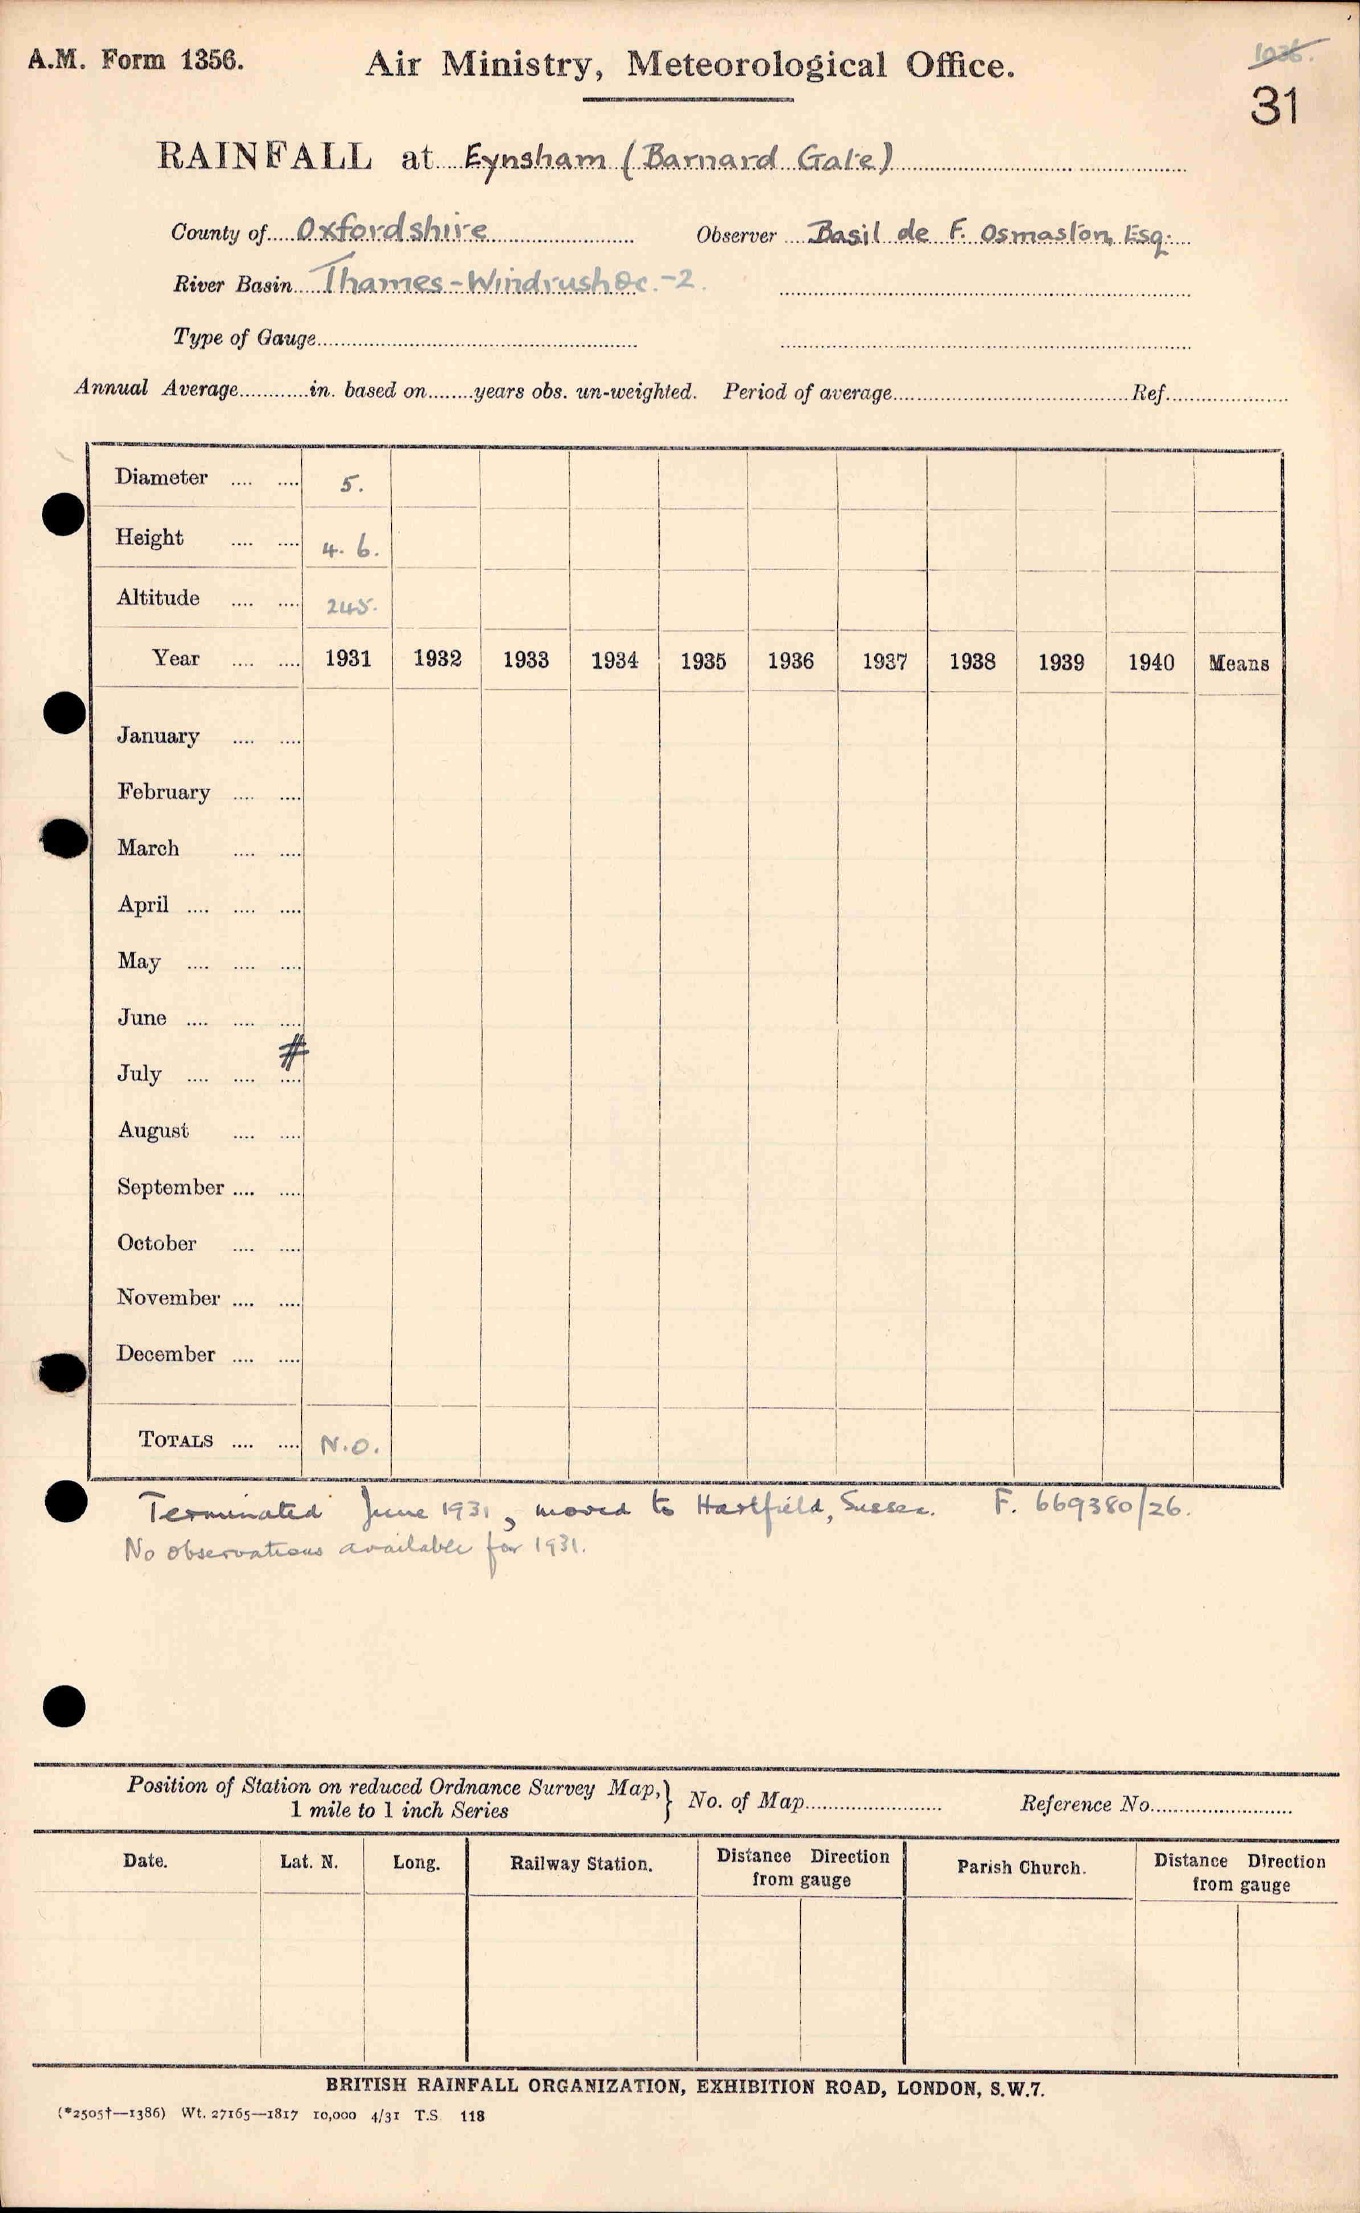 A.M. Form 1356.
Air Ministry, Meteorological Office.
1036.
31
RAINFALL at Eynsham (Barnard Gate)
County of Oxfordshire Observer Basil de F. Osmaston, Esq.
River Basin Thames-Windrush &c.-2.
Type of Gauge
Annual Average in. based on years obs. un-weighted. Period of average Ref.
Diameter 5.
Height 4. 6.
Altitude 245.
Year 1931 1932 1933 1934 1935 1936 1937 1938 1939 1940 Means
January
February
March
April
May
June
#
July
August
September
October
November
December
TOTALS N.O.
Terminated June 1931, moved to Hartfield, Sussex. F. 669380/26.
No observations available for 1931.
Position of Station on reduced Ordnance Survey Map,
1 mile to 1 inch Series } No. of Map Reference No.
Date. Lat. N. Long. Railway Station. Distance Direction from gauge Parish Church. Distance Direction from gauge
BRITISH RAINFALL ORGANIZATION, EXHIBITION ROAD, LONDON, S.W.7.
(*2505†—1386) Wt. 27165—1817 10,000 4/31 T.S. 118